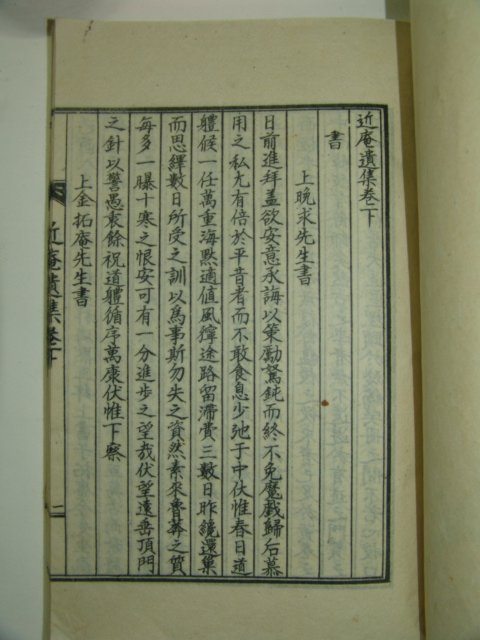 近庵遺集卷下
書
上晩求先生書
日前進拜盖欲安意承誨以策勵駑鈍而終不免魔戲歸后慕
用之私尤有倍於平昔者而不敢食息少弛于中伏惟春日道
體候一任萬重海黙適値風獰途路留滯費三數日昨纔還巢
而思繹數日所受之訓以爲事斯勿失之資然素來魯莽之質
每多一曝十寒之恨安可有一分進步之望哉伏望遠垂頂門
之針以警愚衷餘祝道體循序萬康伏惟下察
上金拓庵先生書
近庵遺集卷下